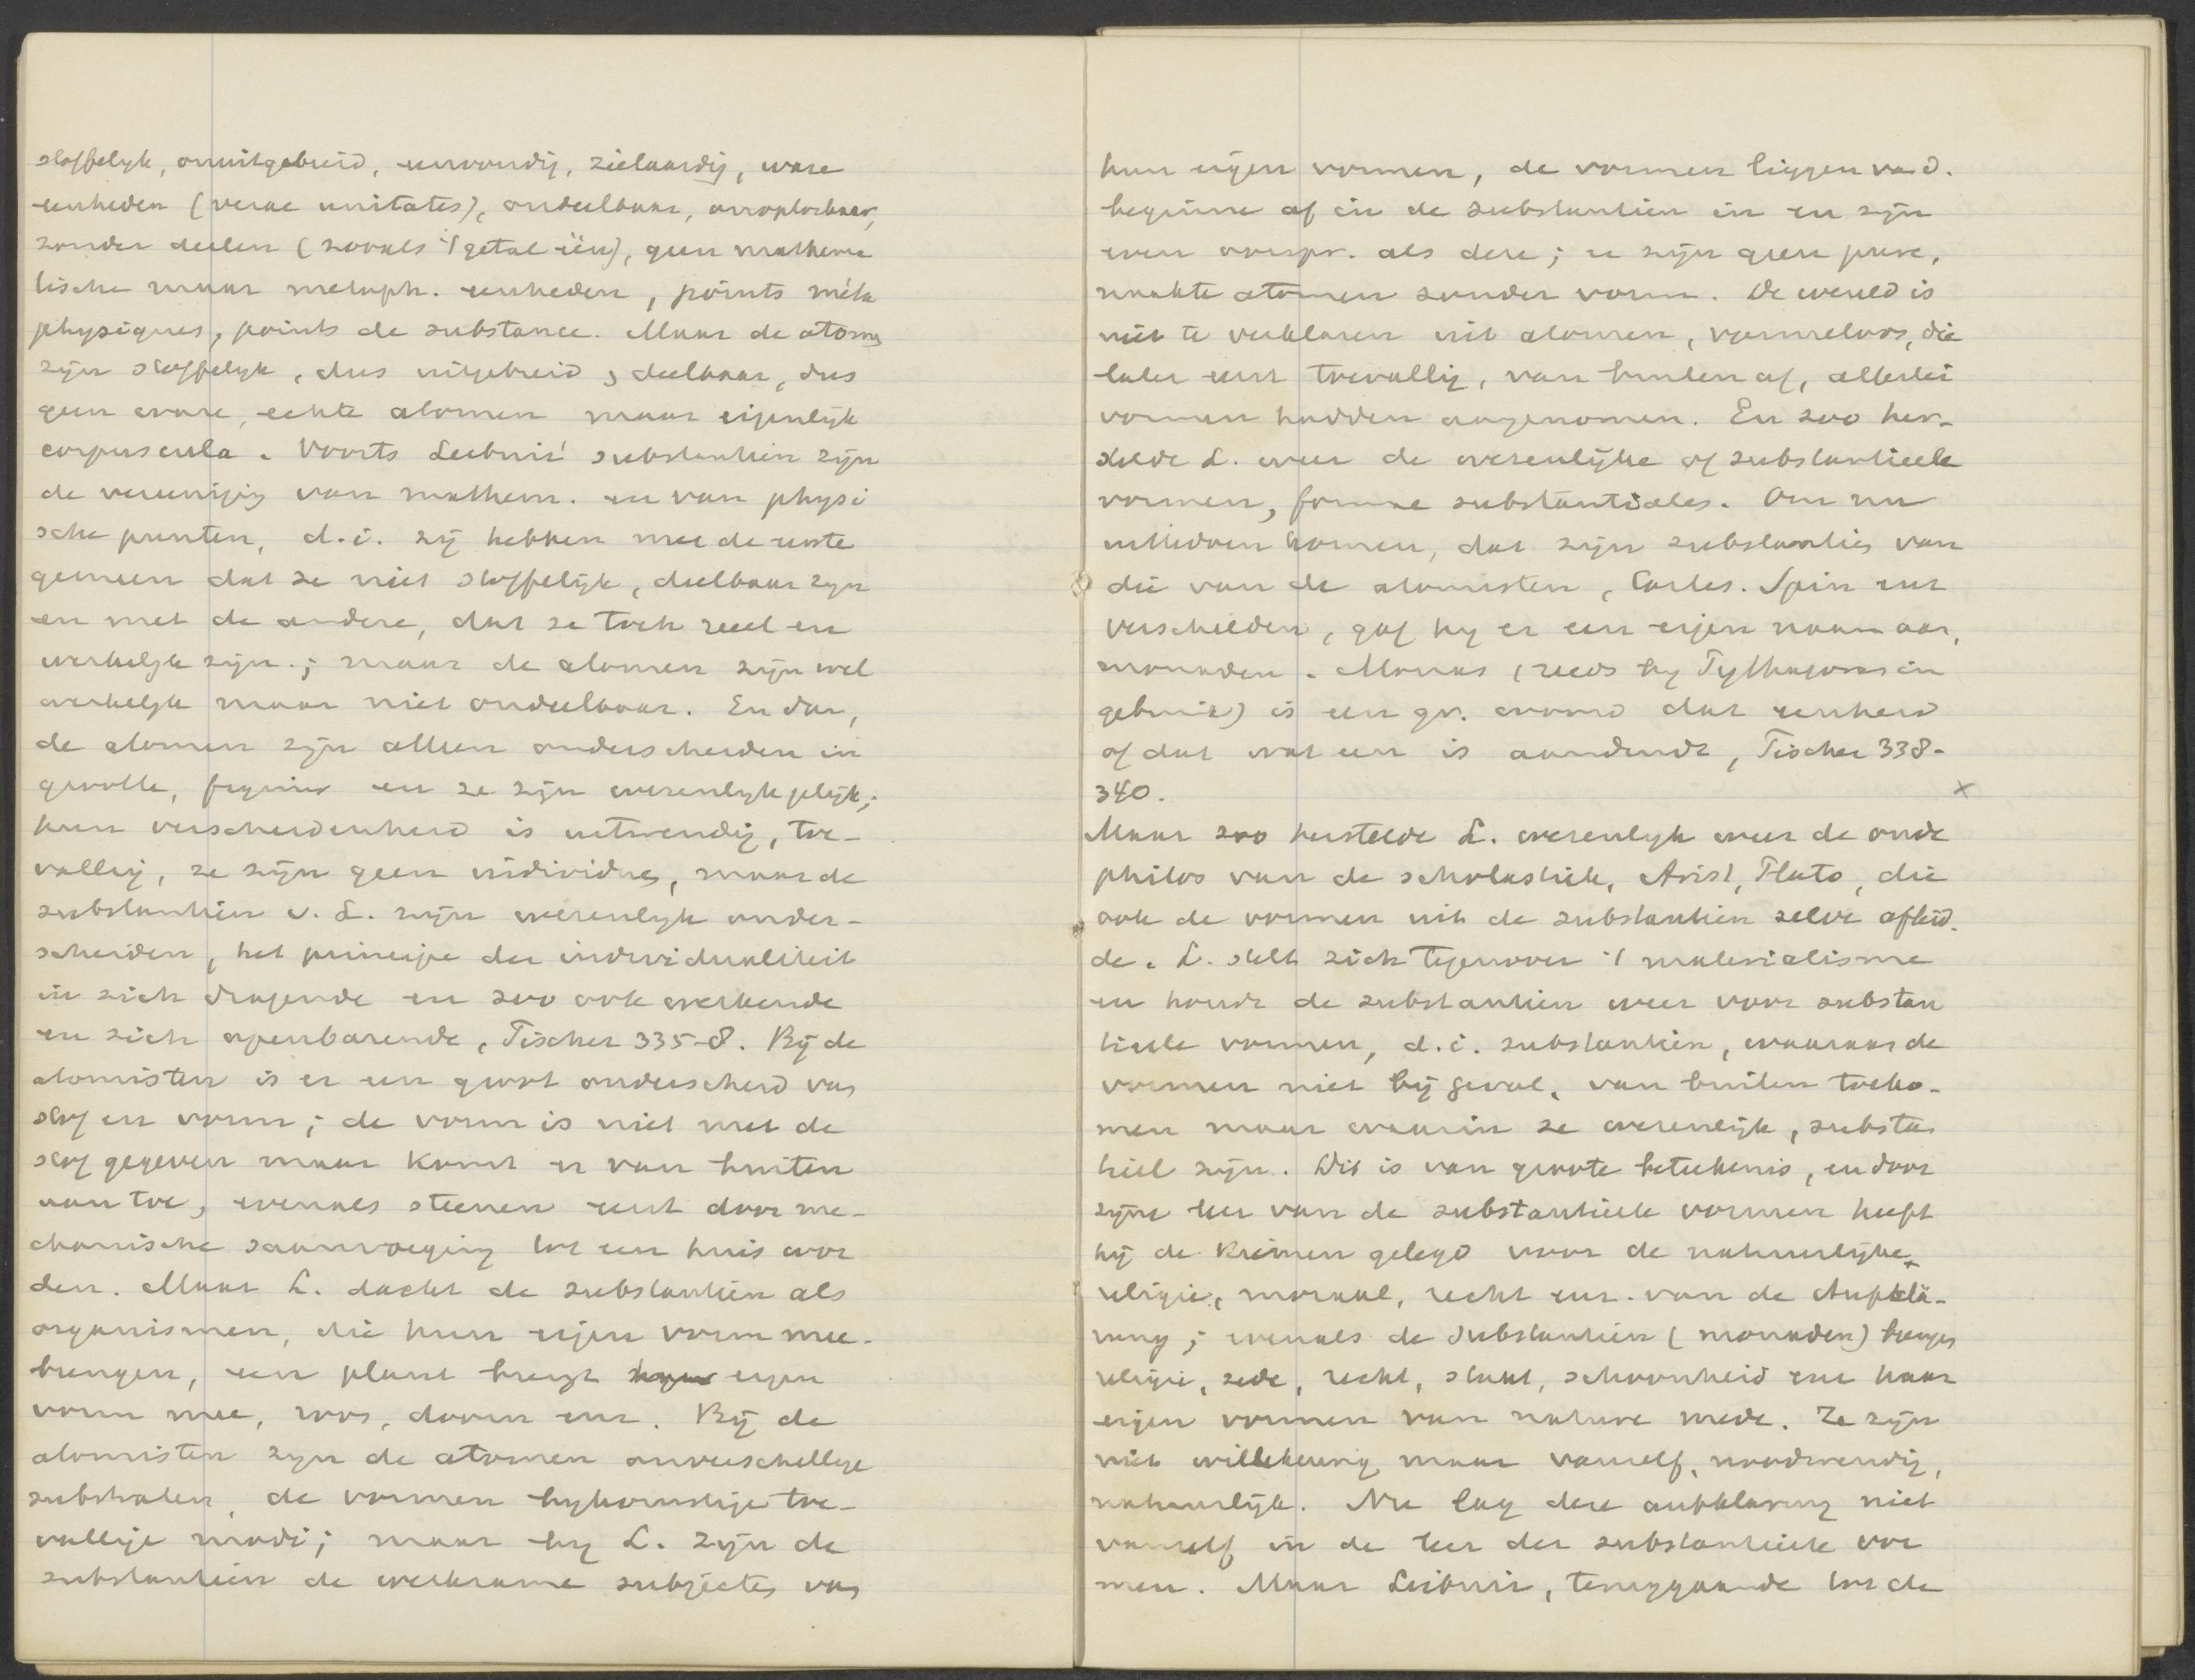 stoffelyk, onuitgebreid, eenvoudig, zielaardig, ware
eenheden (verae unitates), ondeelbaar, onoplosbaar,
zonder deelen (zooals 't getal één), geen mathema
tische maar metaph. eenheden, points méta
physiques, points de substance. Maar de atomen
zijn stoffelyk, dus uitgebreid, deelbaar, dus
geen ware, echte atomen maar eigenlijk
corpuscula. Voorts Leibniz' substantien zijn
de vereeniging van mathem. en van physi
sche punten, d.i. zij hebben met de eerste
gemeen dat ze niet stoffelijk, deelbaar zyn
en met de andere, dat ze toch reeel en
werkelyk zijn.; maar de atomen zijn wel
werkelyk maar niet ondeelbaar. En dan,
de atomen zijn alleen onderscheiden in
grootte, figuur en ze zijn wezenlyk gelijk;
hun verscheidenheid is uitwendig, toe-
vallig, ze zijn geen individuen, maar de
substantien v. L. zijn wezenlyk onder-
scheiden, het principe der individualiteit
in zich dragende en zoo ook werkende
en zich openbarende, Fischer 335-8. Bij de
atomisten is er een groot onderscheid van
stof en vorm; de vorm is niet met de
stof gegeven maar komt er van buiten
aan toe, evenals steenen eerst door me-
chanische saamvoeging tot een huis wor
den. Maar L. dacht de substantien als
organismen, die hun eigen vorm mee-
brengen, een plant brengt eigen
vorm mee, roos, doorn enz. Bij de
atomisten zyn de atomen onverschellige
substraten, de vormen bykomstige toe-
vallige modi; maar by L. zijn de
substantien de werkzame subjecten van
hun eigen vormen, de vormen liggen van d.
beginne af in de substantien in en zijn
even oorspr. als deze; er zijn geen pure,
naakte atomen zonder vorm. De wereld is
niet te verklaren uit atomen, vormeloos, die
later eerst toevallig, van buiten af, allerlei
vormen hadden aangenomen. En zoo her-
stelde L. weer de wezenlijke of substantieele
vormen, formae substantiales. Om nu
uittedrukken, dat zijn substanties van
die van de atomisten, Cartes. Spin enz
verschilden, gaf hy er een eigen naam aan,
monaden. Monas (reeds by Pythagoras in
gebruik) is een gr. woord dat eenheid
of dat wat een is aanduidt, Fischer 338-
340. x
Maar zoo herstelde L. wezenlyk weer de oude
philos van de scholastiek, Arist, Plato, die
ook de vormen uit de substantien zelve afleid-
de. L. stelt zich tegenover 't materialisme
en houdt de substantien weer voor substan
tieele vormen, d.i. substantien, waaraan de
vormen niet bij geval, van buiten toeko-
men maar waarin ze wezenlijk, substan
tieel zijn. Dit is van groote beteekenis, en door
zijne leer van de substantieele vormen heeft
hij de kiemen gelegd voor de natuurlijke
religie, moraal, recht enz. van de Aufklä-
rung; evenals de substantien (monaden) brengen
religie, zede, recht, staat, schoonheid enz haar
eigen vormen van nature mede. Ze zijn
niet willekeurig maar vanzelf, noodwendig,
natuurlijk. Nu lag deze aufklarung niet
vanzelf in de leer der substantieele vor
men. Maar Leibniz, teruggaande tot de